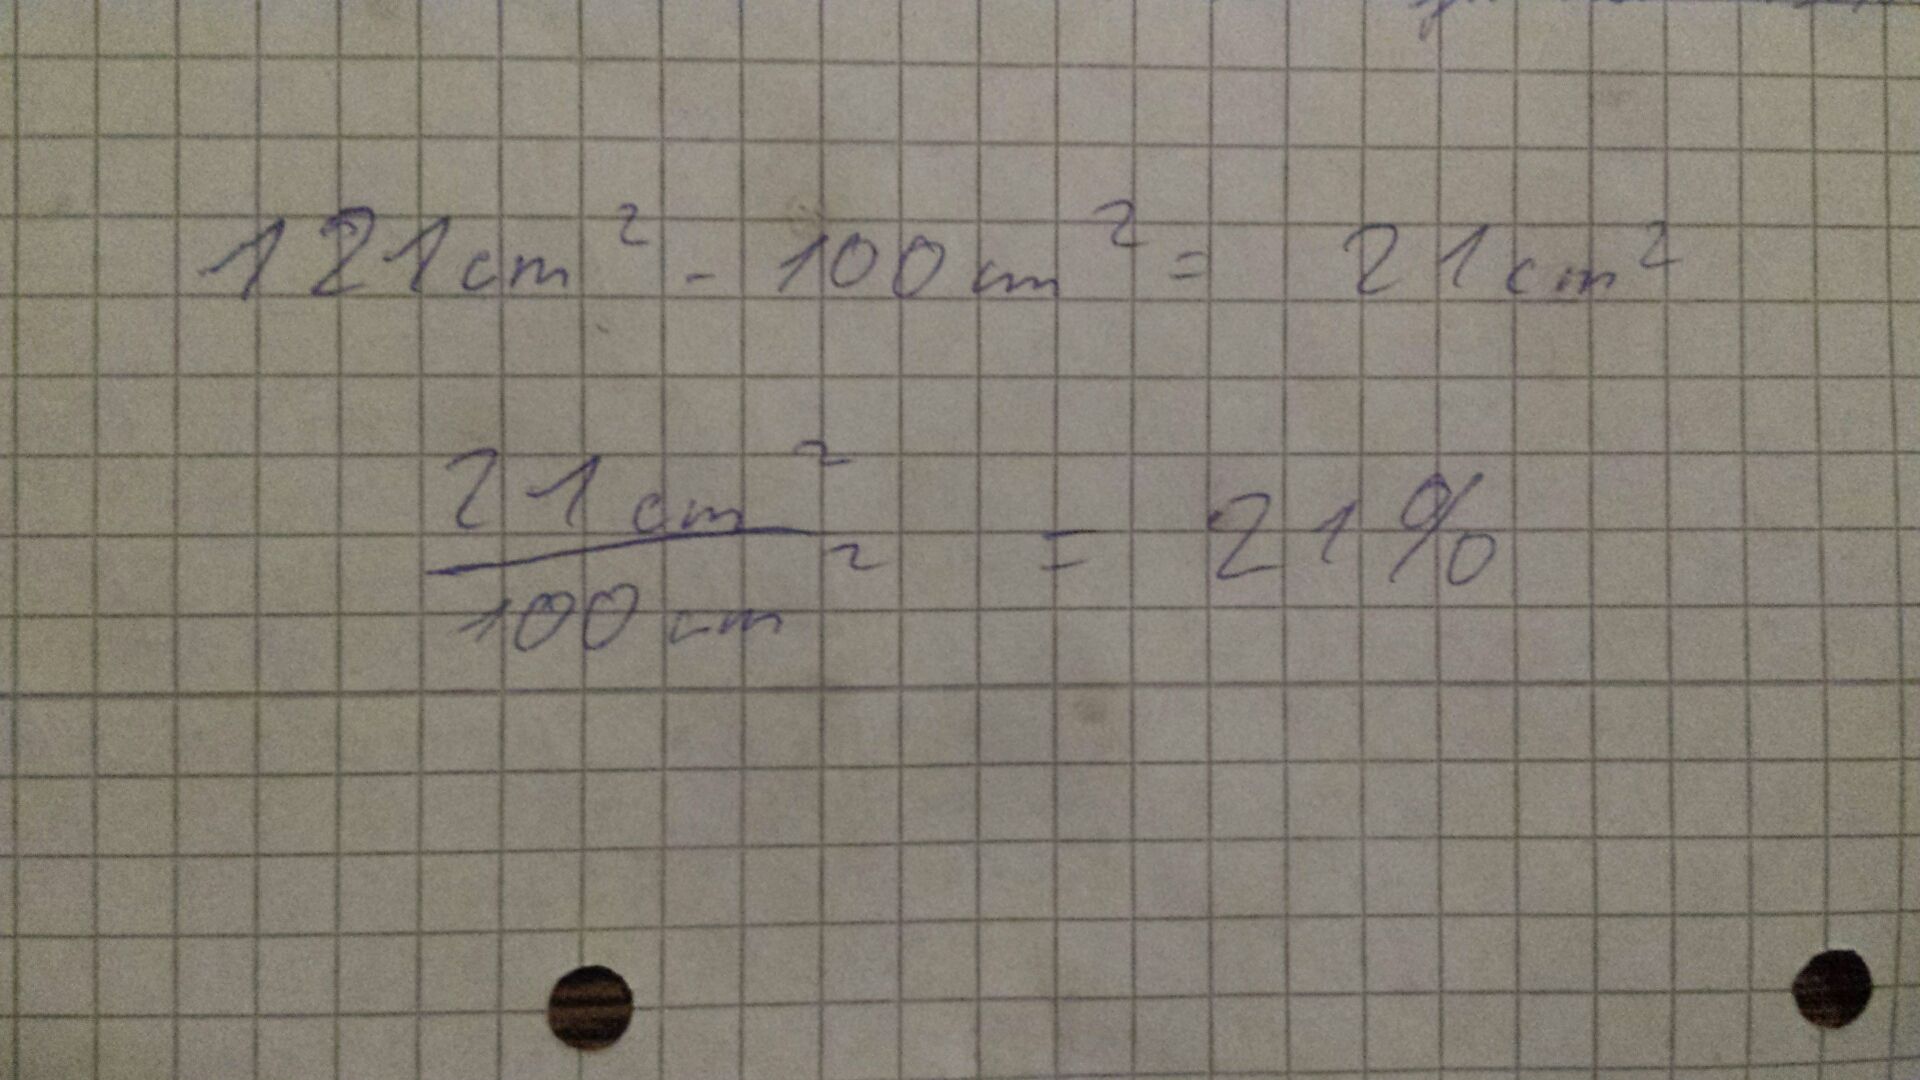 121cm² - 100cm² = 21cm²
21cm² / 100cm² = 21%